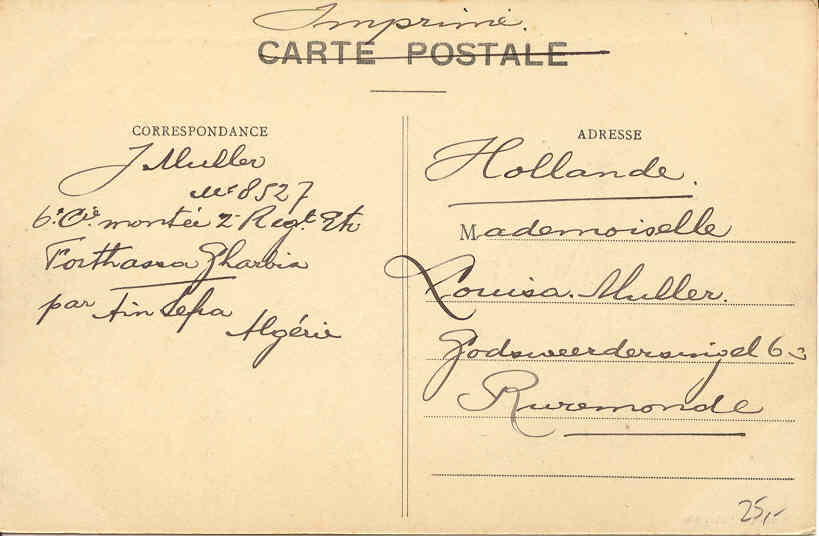 Imprimé.
CARTE POSTALE
CORRESPONDANCE
J Muller
Mle 8527
6e Cie montée 2e Regt Etr
Forthassa Gharbia
par Ain Sefra
Algérie
ADRESSE
Hollande.
Mademoiselle
Louisa Muller.
Godsweerdersingel 63
Ruremonde
25,-